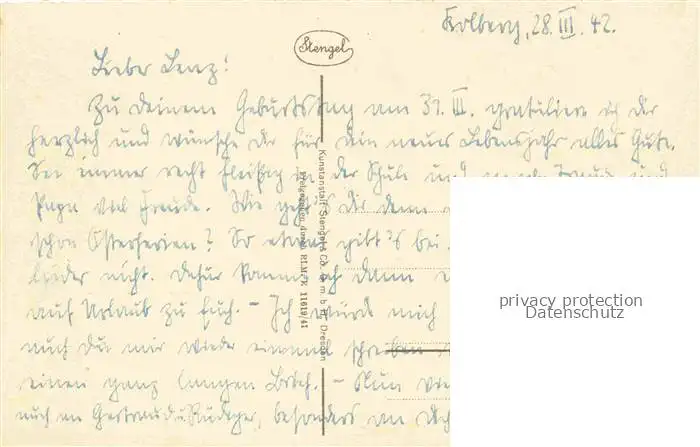 Kolberg, 28. III. 42.
Stengel
Lieber Lenz!
Zu deinem Geburtstag am 31. III. gratuliere ich dir
herzlich und wünsche dir für dein neues Lebensjahr alles Gute.
Sei immer recht fleißig in der Schule und mache und
Papa viel Freude. Wie geht's Dir denn
schon Osterferien? So etwas gibt's bei
leider nicht. Dafür komme ich dann
auf Urlaub zu Euch. - Ich würde mich
auch Du mir wieder einmal schreiben
einen ganz langen Brief. - Nun
auch an Gertraud u. Rüdiger, besonders an Dich
Kunstanstalt Stengel & Co. G.m.b.H., Dresden
Freigegeben durch RLM/K 11619/41
privacy protection
Datenschutz